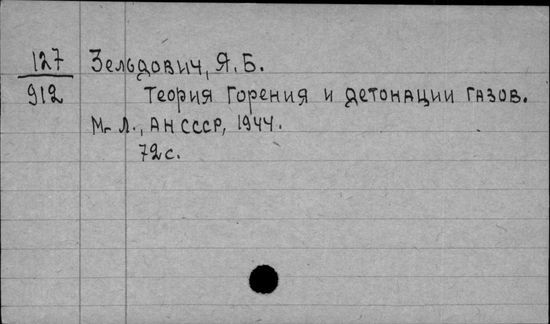 127 Зельдович, Я. Б.
912 Теория горения и детонации газов.
М-Л., АН СССР, 1944.
72 с.